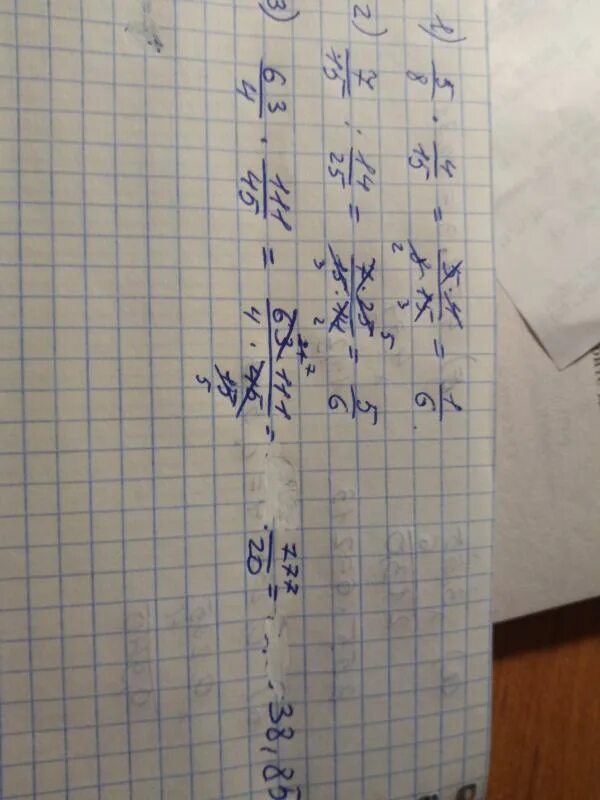 1) 5/8 · 4/15 = 5·4/8·15 = 1/6
2 3
2) 7/15 : 14/25 = 7·25/15·14 = 5/6
5
3 2
3) 63/4 · 111/45 = 63·111/4·45 = 777/20 = 38,85
21 7
15
5